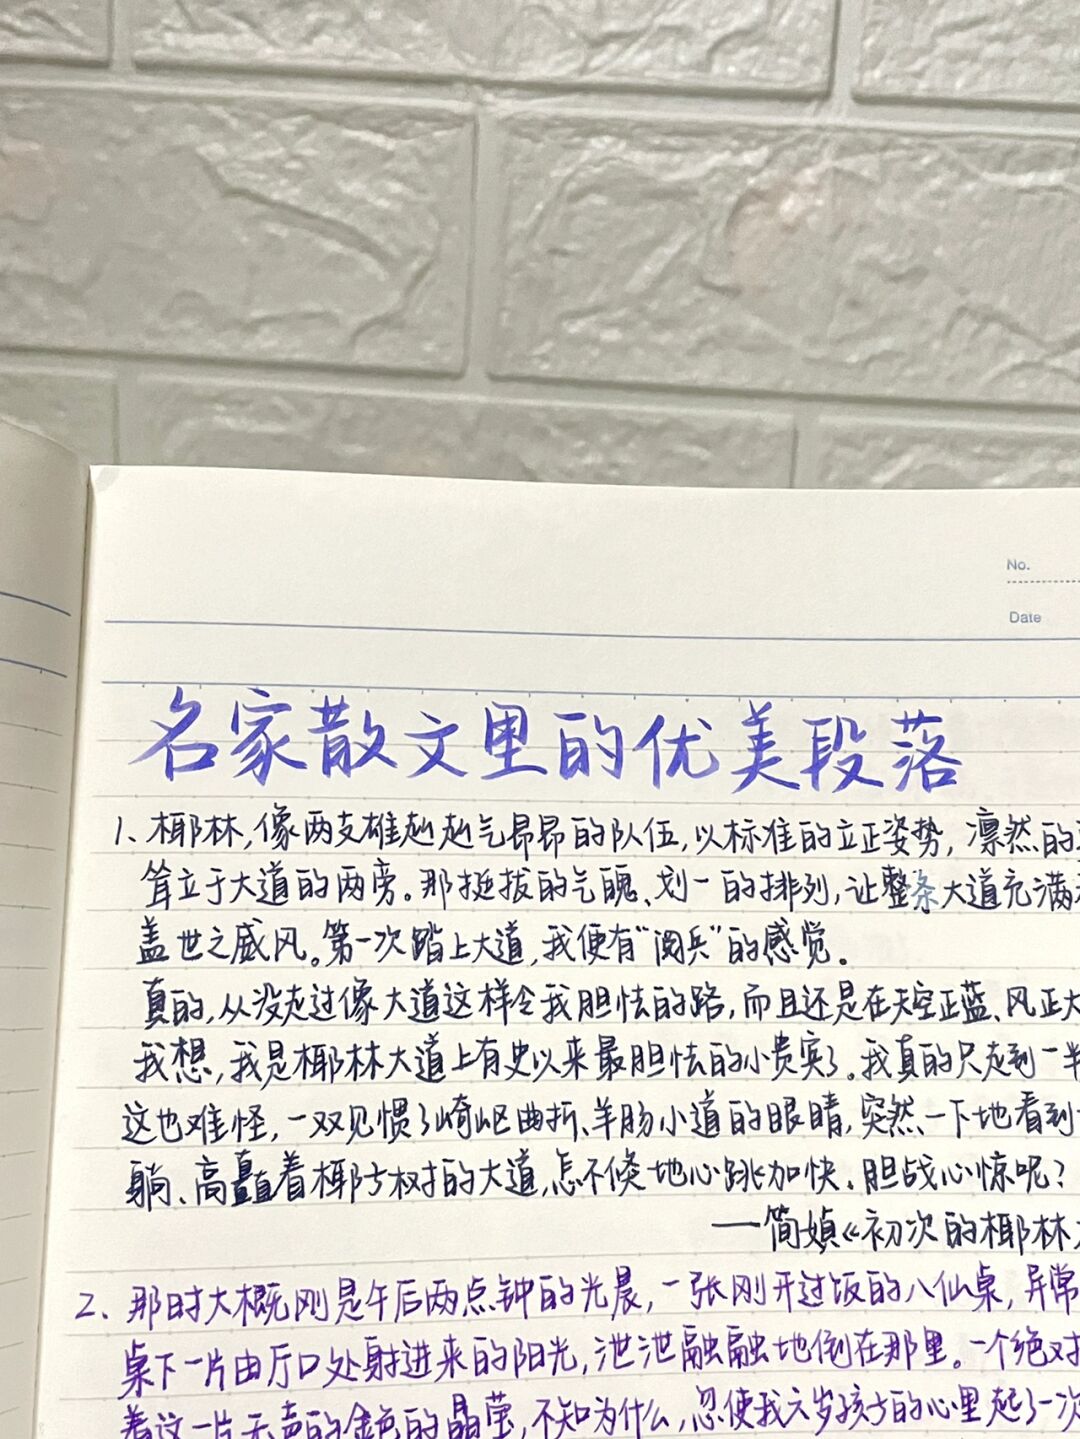 No.
Date
名家散文里的优美段落
1、椰林，像两支雄赳赳气昂昂的队伍，以标准的立正姿势，凛然的
耸立于大道的两旁。那挺拔的气魄、划一的排列，让整条大道充满
盖世之威风。第一次踏上大道，我便有“阅兵”的感觉。
真的，从没走过像大道这样令我胆怯的路，而且还是在天空正蓝、风正大
我想，我是椰林大道上有史以来最胆怯的小贵宾了。我真的只走到一半
这也难怪，一双见惯了崎岖曲折、羊肠小道的眼睛，突然一下地看到
躺、高矗着椰子树的大道，怎不倏地心跳加快、胆战心惊呢？
——简媜《初次的椰林
2、那时大概刚是午后两点钟的光晨，一张刚开过饭的八仙桌，异常
桌下一片由厅口处射进来的阳光，泄泄融融地倒在那里。一个绝对
着这一片无声的金色的晶莹，不知为什么，忽使我六岁孩子的心里起了一次